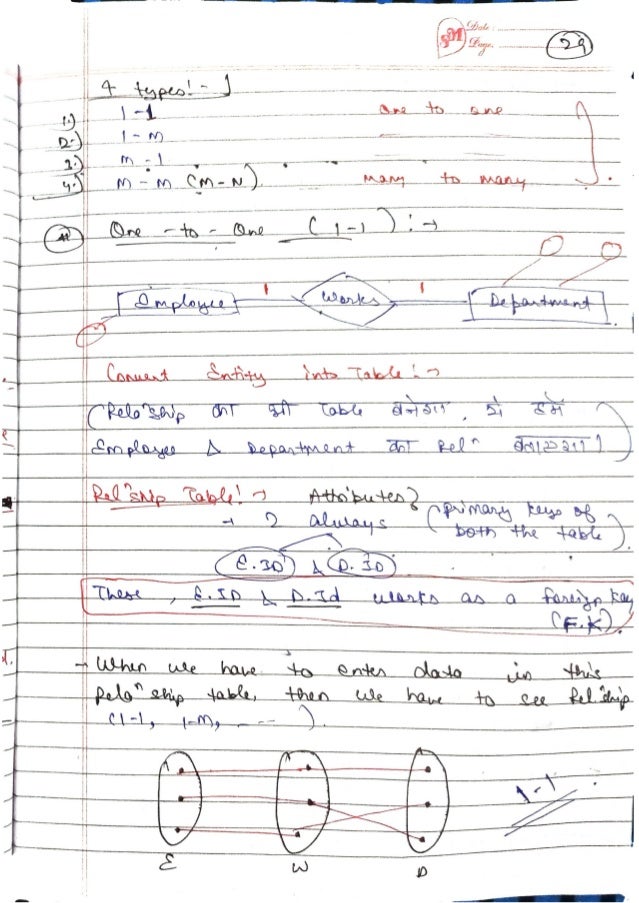 Date:
Page.
29
4 types:-
1.) 1-1 one to one
2.) 1-m
3.) m-1
4.) m-m (M-N). many to many
One-to-One (1-1):→
1 1
Employee Works Department
Convert Entity into Table:→
(Relaⁿship का भी Table बनेगा, ये हमें
Employee & Department का Relⁿ बताएगा।)
Relⁿship Table:→ Attributes?
→ 2 always (primary keys of
both the table).
E.ID & D.ID
These, E.ID & D.Id works as a foreign key
(F.K).
→ When we have to enter data in this
Relaⁿship table, then we have to see Relⁿship
(1-1, 1-m, ----).
1-1
E W D